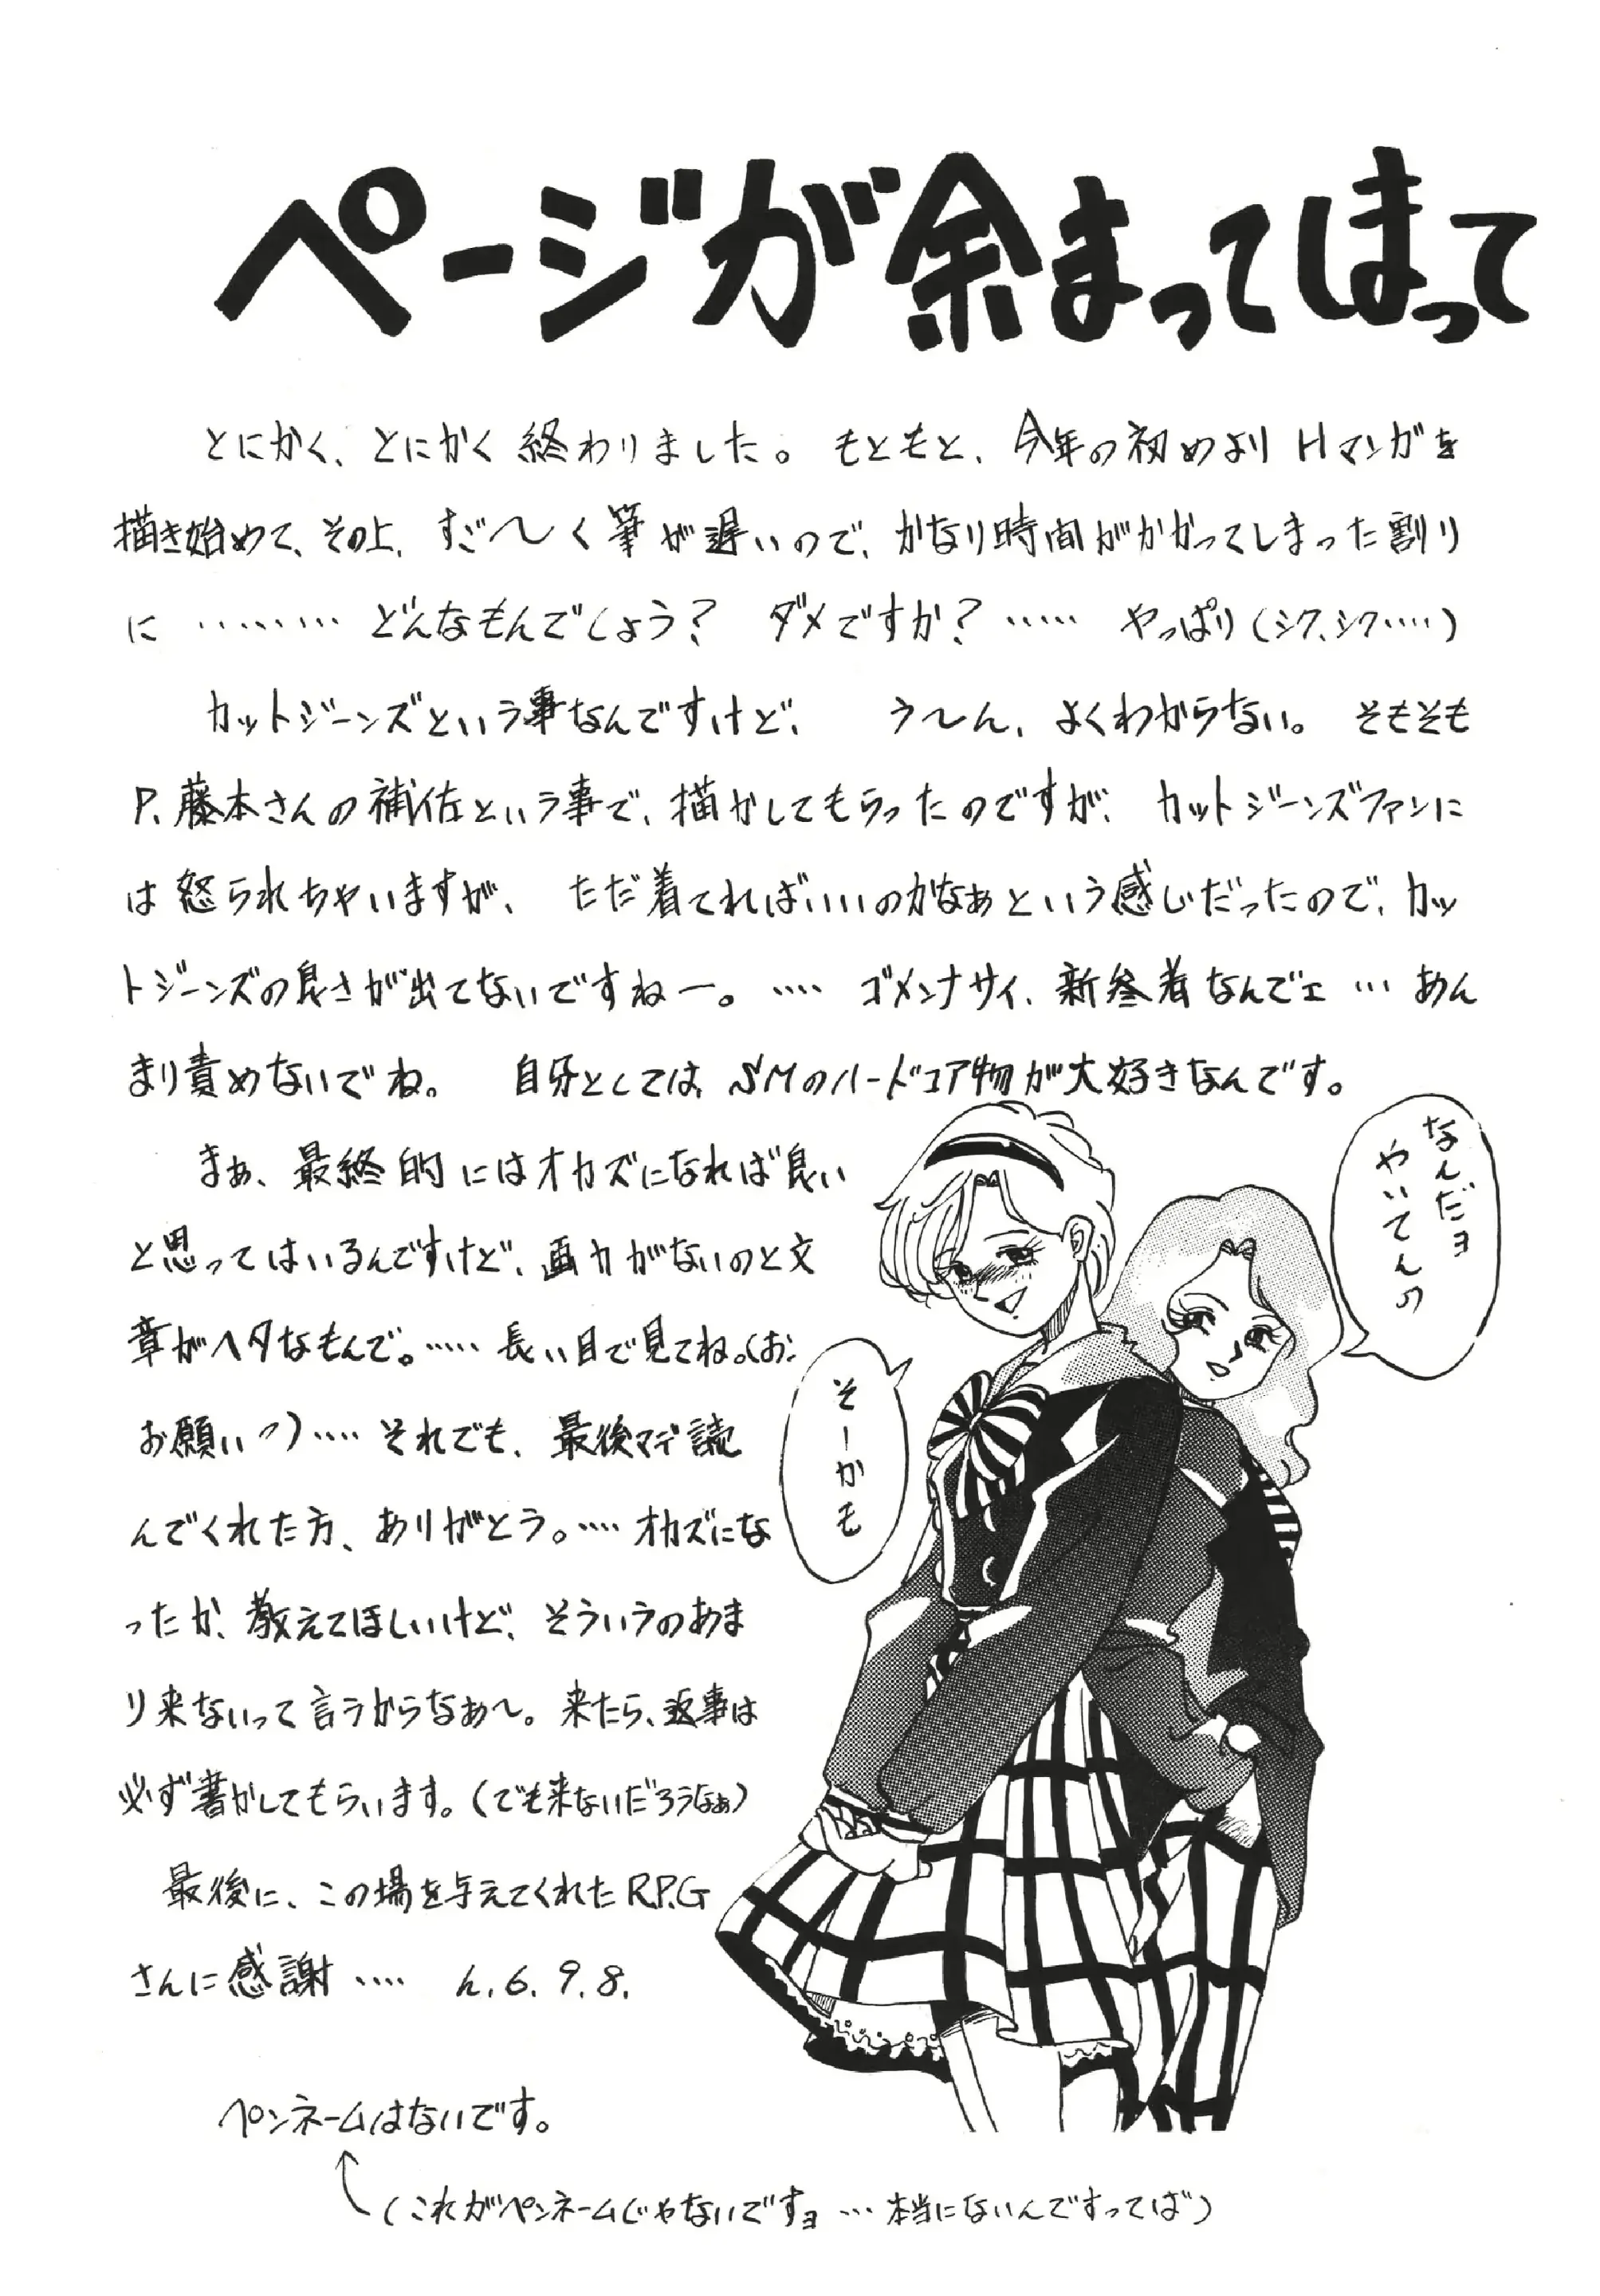 ページが余まってしまって
とにかく、とにかく終わりました。もともと、今年の初めよりHマンガを
描き始めて、その上、すご〜く筆が遅いので、かなり時間がかかってしまった割り
に ……… どんなもんでしょう? ダメですか? …… やっぱり(シク、シク……)
カットジーンズという事なんですけど、 う〜ん、よくわからない。 そもそも
P.藤本さんの補佐という事で、描かしてもらったのですが、カットジーンズファンに
は怒られちゃいますが、 ただ着てればいいのかなぁという感じだったので、カッ
トジーンズの良さが出てないですねー。…… ゴメンナサイ、新参者なんでェ … あん
まり責めないでね。 自分としては、SMのハードコア物が大好きなんです。
まぁ、最終的にはオカズになれば良い
と思ってはいるんですけど、画力がないのと文
章がヘタなもんで。…… 長い目で見てね。(お:
お願いっ)…… それでも、最後マデ読
んでくれた方、ありがとう。…… オカズにな
ったか、教えてほしいけど、そういうのあま
り来ないって言うからなぁ〜。来たら、返事は
必ず書かしてもらいます。(でも来ないだろうなぁ)
最後に、この場を与えてくれたR.P.G
さんに感謝 …… h.6.9.8.
なんだョ
やいてんの
そーかも
ペンネームはないです。
(これがペンネームじゃないですョ … 本当にないんですってば)